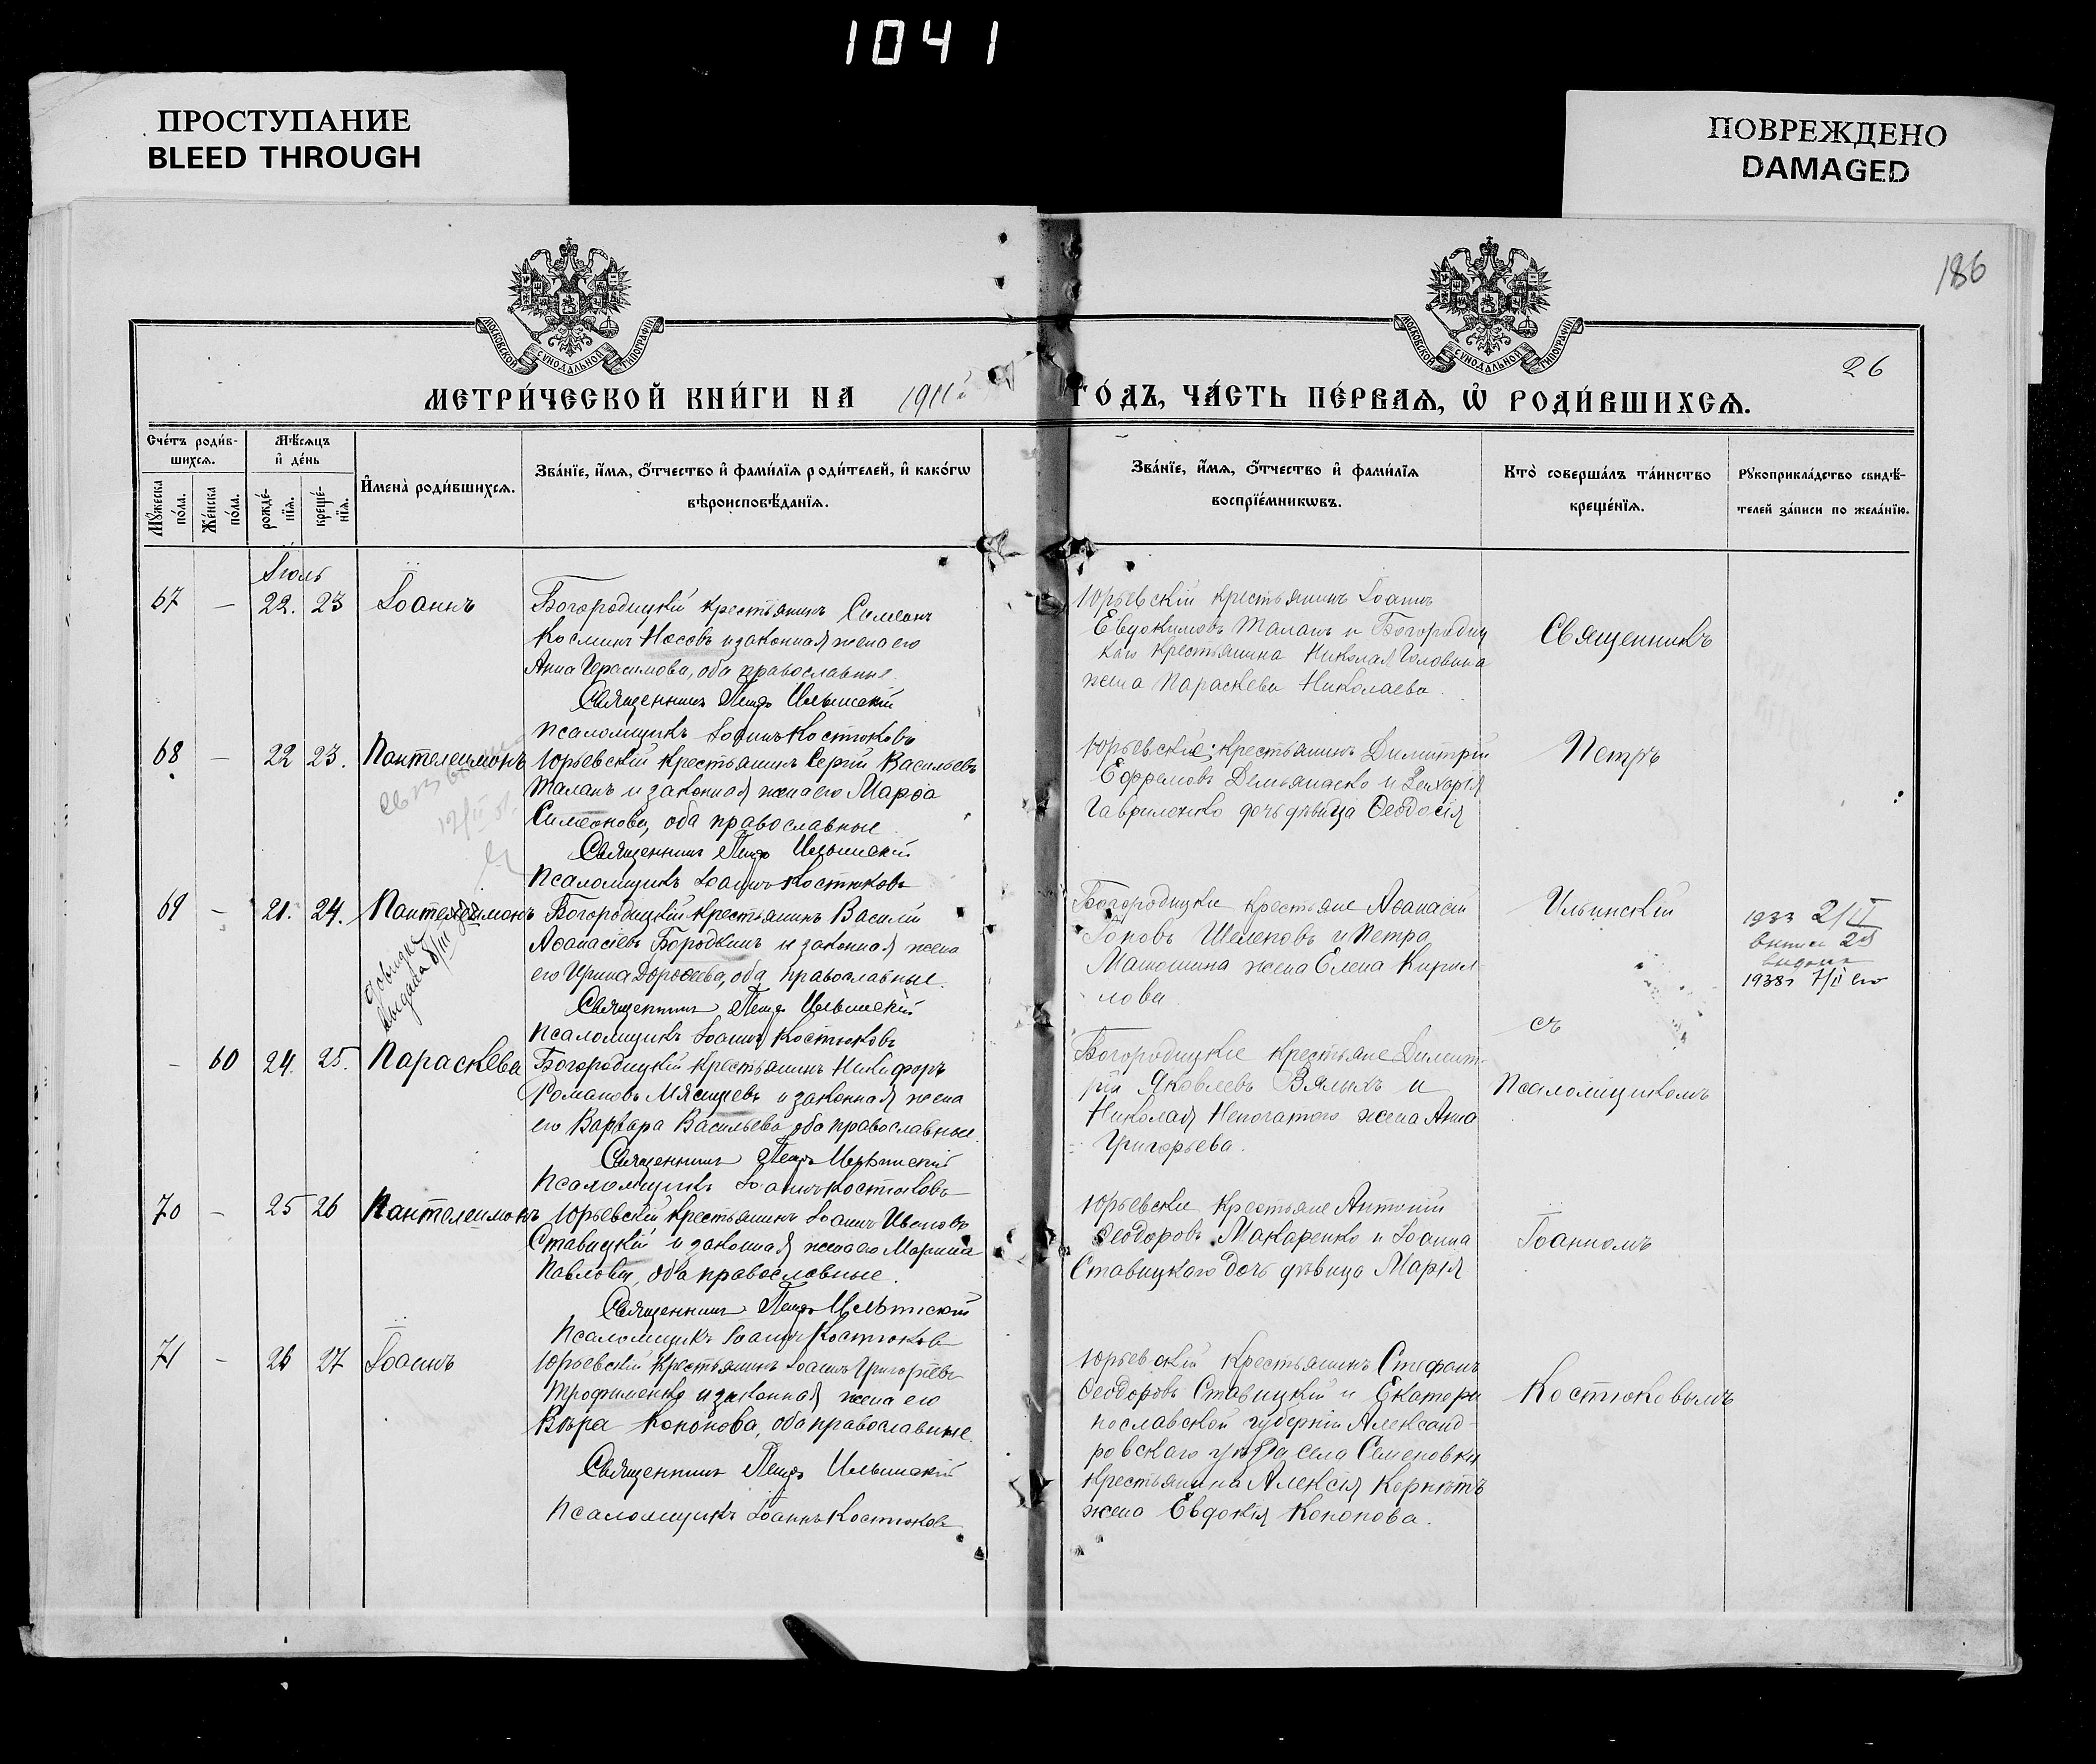 1041
ПРОСТУПАНИЕ
BLEED THROUGH
ПОВРЕЖДЕНО
DAMAGED
186
МОСКОВСКОЙ СУНОДАЛЬНОЙ ТИПОГРАФІИ
МОСКОВСКОЙ СУНОДАЛЬНОЙ ТИПОГРАФІИ
26
МЕТРИ́ЧЕСКОЙ КНИ́ГИ НА 1911й ГО́ДЪ, ЧА́СТЬ ПЕ́РВАЯ, Ѡ РОДИ́ВШИХСЯ.
Сче́тъ роди́в-
шихся.
Му́жеска по́ла.
Же́нска по́ла.
Мѣ́сяцъ
и҆ де́нь
рожде́-
нїя.
креще́-
нїя.
И҆мена̀ роди́вшихся.
Зва́нїе, и҆́мя, ѻ҆́тчество и҆ фами́лїя роди́телей, и҆ како́гѡ
вѣроисповѣ́данїя.
Зва́нїе, и҆́мя, ѻ҆́тчество и҆ фами́лїя
воспрїе́мникѡвъ.
Кто̀ соверша́лъ та́инство
креще́нїя.
Рꙋкоприкла́дство свидѣ́-
телей за́писи по жела́нїю.
Іюль
67 — 22. 23 Іоаннъ
Богородицкій крестьянинъ Симеонъ
Косминъ Носовъ и законная жена его
Анна Герасимова, оба православные.
Священникъ Петръ Ильинскій
Псаломщикъ Іоаннъ Костюковъ
Юрьевскій крестьянинъ Іоаннъ
Евдокимовъ Таланъ и Богородиц
каго крестьянина Николая Головина
жена Параскева Николаева.
Священникъ
68 — 22 23. Пантелеимонъ
Юрьевскій крестьянинъ Сергій Васильевъ
Таланъ и законная жена его Марѳа
Симеонова, оба православные
Священникъ Петръ Ильинскій
Псаломщикъ Іоаннъ Костюковъ
Юрьевскіе: крестьянинъ Димитрій
Ефремовъ Демьяненко и Захарія
Гавриленко дочь дѣвица Ѳеодосія
Петръ
69 — 21. 24. Пантелеимонъ
Богородицкій крестьянинъ Василій
Аѳанасіевъ Бородкинъ и законная жена
его Ирина Дороѳеева, оба православные.
Священникъ Петръ Ильинскій
Псаломщикъ Іоаннъ Костюковъ
Богородицкіе крестьяне Аѳанасій
Іововъ Шелеповъ и Петра
Матюшина жена Елена Кирил-
лова.
Ильинскій
1933 2/II
1938 7/I
съ
— 60 24. 25. Параскева
Богородицкій крестьянинъ Никифоръ
Романовъ Мясищевъ и законная жена
его Варвара Васильева оба православные.
Священникъ Петръ Ильинскій
Псаломщикъ Іоаннъ Костюковъ
Богородицкіе крестьяне Димит-
рій Яковлевъ Вялыхъ и
Николая Непочатого жена Анна
Григорьева.
Псаломщикомъ
70 — 25 26 Пантелеимонъ
Юрьевскій крестьянинъ Іоаннъ Ивановъ
Ставицкій и законная жена его Марина
Павлова, оба православные.
Священникъ Петръ Ильинскій
Псаломщикъ Іоаннъ Костюковъ
Юрьевскіе крестьяне Антоній
Ѳеодоровъ Макаренко и Іоанна
Ставицкого дочь дѣвица Марія
Іоанномъ
71 — 26 27 Іоаннъ
Юрьевскій крестьянинъ Іоаннъ Григорьевъ
Трофименко и законная жена его
Вѣра Кононова, оба православные.
Священникъ Петръ Ильинскій
Псаломщикъ Іоаннъ Костюковъ
Юрьевскій крестьянинъ Стефанъ
Ѳеодоровъ Ставицкій и Екатери
нославской губерніи Александ-
ровскаго уѣзда села Семеновки
крестьянина Алексія Корнѣтъ
жена Евдокія Кононова.
Костюковымъ